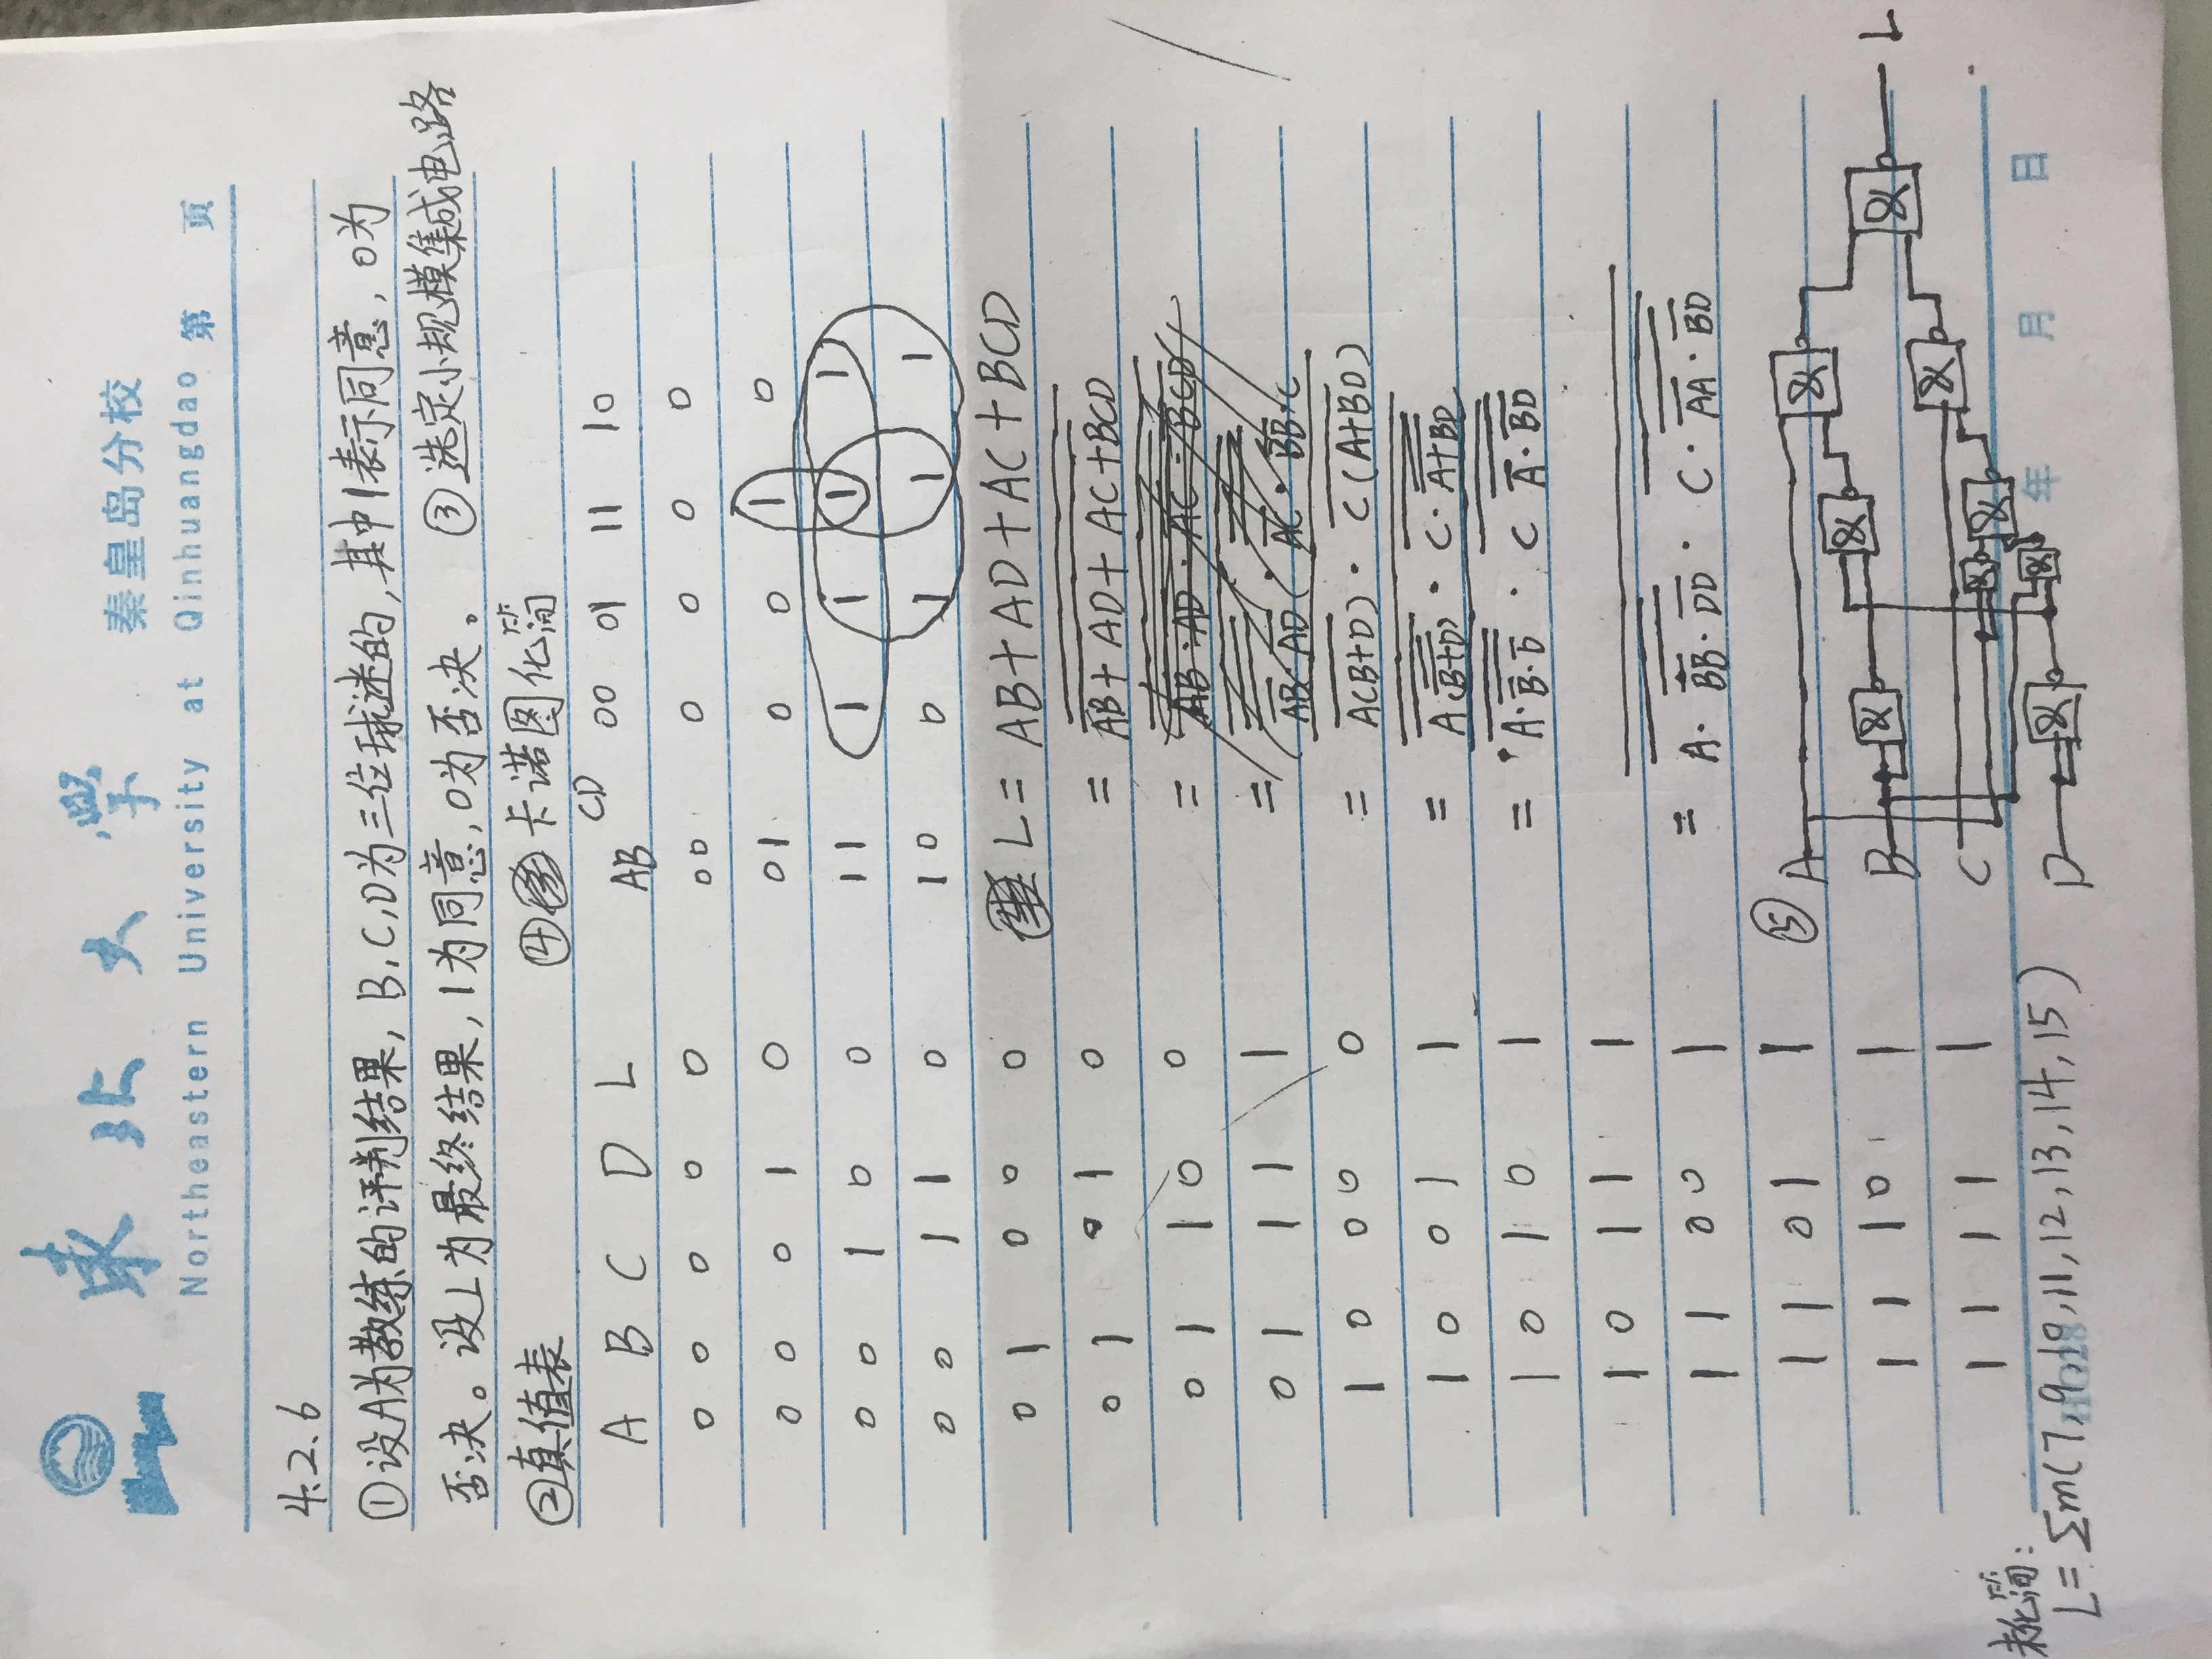 東北大學 秦皇岛分校
Northeastern University at Qinhuangdao 第 页
4.2.6
①设A为教练的评判结果，B,C,D为三位球迷的，其中1表示同意，0为
否决。设L为最终结果，1为同意，0为否决。 ③选定小规模集成电路
②真值表 ④卡诺图化简
A B C D L
0 0 0 0 0
0 0 0 1 0
0 0 1 0 0
0 0 1 1 0
0 1 0 0 0
0 1 0 1 0
0 1 1 0 0
0 1 1 1 1
1 0 0 0 0
1 0 0 1 1
1 0 1 0 1
1 0 1 1 1
1 1 0 0 1
1 1 0 1 1
1 1 1 0 1
1 1 1 1 1
未化简：
L=Σm(7,9,10,11,12,13,14,15)
AB CD 00 01 11 10
00 0 0 0 0
01 0 0 1 0
11 1 1 1 1
10 0 1 1 1
L = AB+AD+AC+BCD
= AB+AD+AC+BCD
= AB·AD·AC·BCD
= AB·AD·AC·BB·C
= A(B+D)·C(A+BD)
= A(B+D)·C·A+BD
= A·B·D·C A·BD
= A·BB·DD·C·AA·BD
⑤ A & 
B & & & L
C & & &
D & &
年 月 日